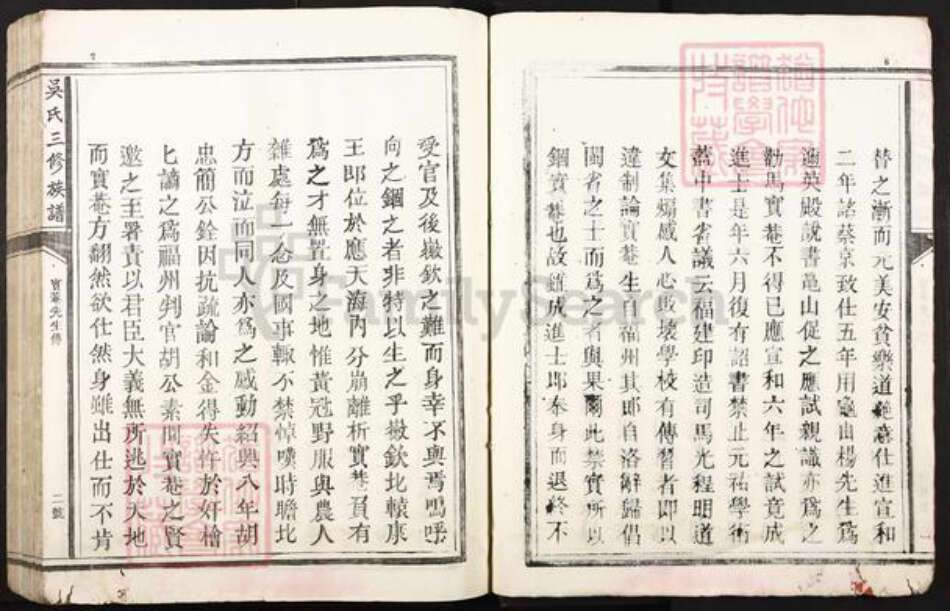 替之漸而元美安貧樂道絶意仕進宣和
二年詔蔡京致仕五年用龜山楊先生爲
邇英殿說書龜山促之應試親識亦爲之
勸馬實菴不得已應宣和六年之試竟成
進士是年六月復有詔書禁止元祐學術
蓋中書省議云福建印造司馬光程明道
文集煽惑人心敗壞學校有傳習者即以
違制論實菴生有福州其郎自洛歸倡
閩省之士而爲之者與果爾此禁實所以
錮實菴也故雖成進士即奉身而退終不
受官及後徽欽之難而身幸不與焉嗚呼
向之錮之者非特以生之乎徽欽北轅康
王即位於應天海內分崩離析實菴負有
爲之才無置身之地惟黃冠野服與農人
雜處每一念及國事輒不禁悼嘆時瞻北
方而泣而同人亦爲之感動紹興八年胡
忠簡公銓因抗疏論和金得失忤於奸檜
匕謫之爲福州判官胡公素聞實菴之賢
邀之至署責以君臣大義無所逃於天地
而實菴方翻然欲仕然身雖出仕而不肯
吳氏三修族譜
實菴先生傳
二號
FamilySearch